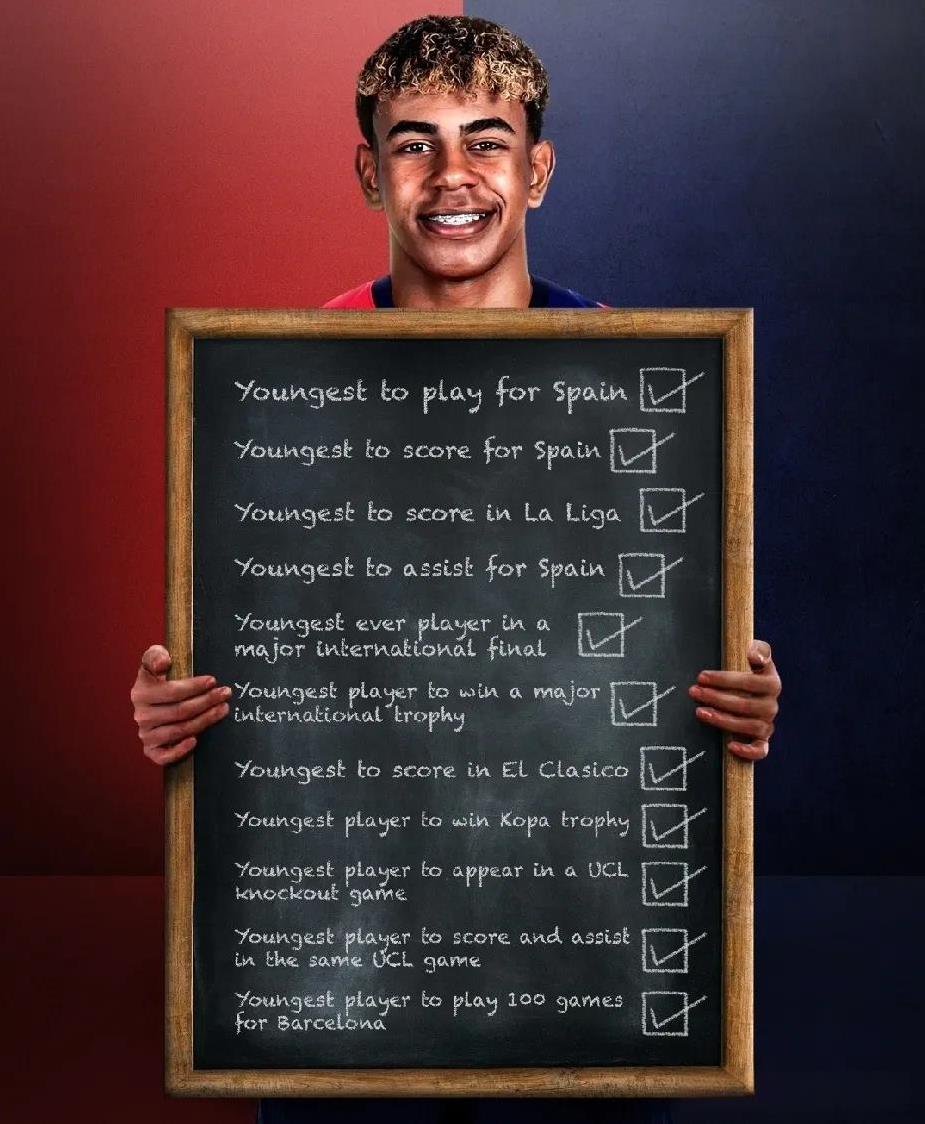 Youngest to play for Spain
Youngest to score for Spain
Youngest to score in La Liga
Youngest to assist for Spain
Youngest ever player in a
major international final
Youngest player to win a major
international trophy
Youngest to score in El Clasico
Youngest player to win Kopa trophy
Youngest player to appear in a UCL
knockout game
Youngest player to score and assist
in the same UCL game
Youngest player to play 100 games
for Barcelona